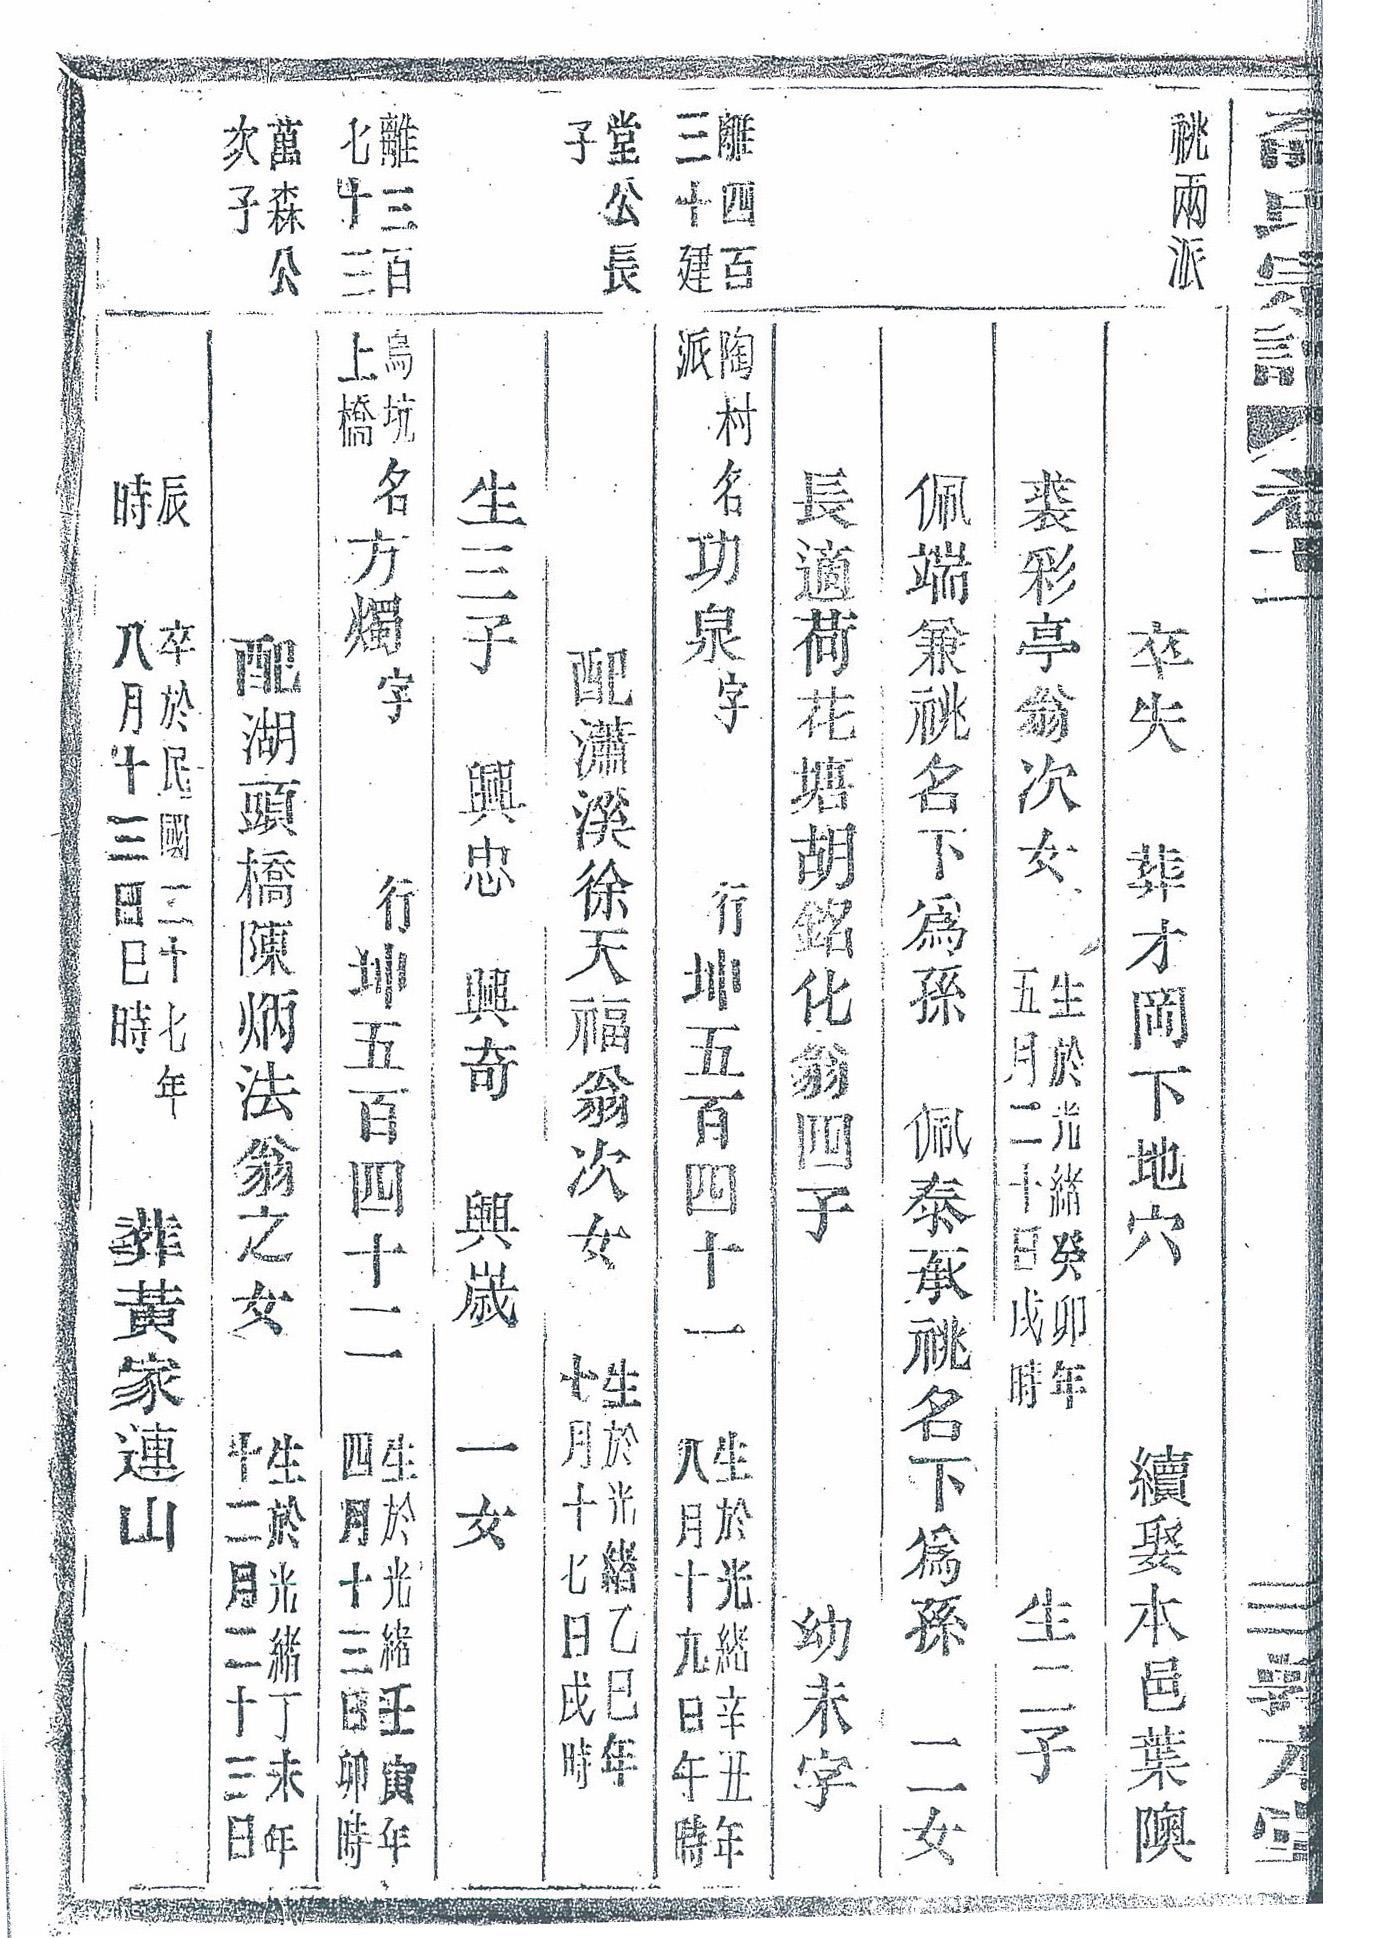 氏宗譜 卷二
敦本堂
祧兩派
卒失 葬才岡下地穴 續娶本邑葉隩
裘彩亭翁次女 生於光緒癸卯年五月二十日戌時 生二子
佩端兼祧名下為孫 佩泰承祧名下為孫 二女
長適荷花塘胡銘化翁四子 幼未字
離四百三十建
陶村派 名功泉字 行坤五百四十一 生於光緒辛丑年八月十九日午時
堂公長子
配瀟溪徐天福翁次女 生於光緒乙巳年十月十七日戌時
生三子 興忠 興奇 興嵗 一女
離三百七十三
烏坑上橋 名方燭字 行坤五百四十二 生於光緒壬寅年四月十三日卯時
萬森公次子
配湖頭橋陳炳法翁之女 生於光緒丁未年十二月二十三日
辰時 卒於民國三十七年八月十三日巳時 葬黃家連山